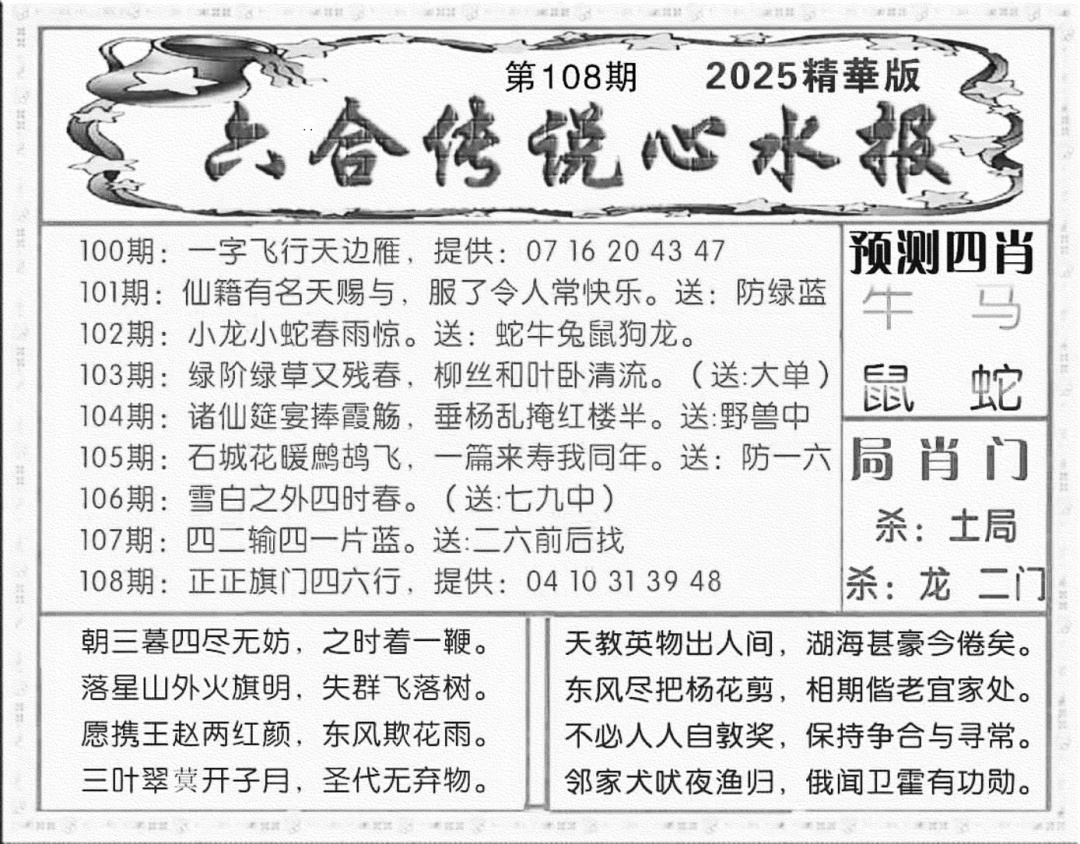 第108期 2025精華版
六合传说心水报
100期：一字飞行天边雁，提供：07 16 20 43 47
101期：仙籍有名天赐与，服了令人常快乐。送：防绿蓝
102期：小龙小蛇春雨惊。送：蛇牛兔鼠狗龙。
103期：绿阶绿草又残春，柳丝和叶卧清流。（送:大单）
104期：诸仙筵宴捧霞觞，垂杨乱掩红楼半。送:野兽中
105期：石城花暖鹧鸪飞，一篇来寿我同年。送：防一六
106期：雪白之外四时春。（送:七九中）
107期：四二输四一片蓝。送:二六前后找
108期：正正旗门四六行，提供：04 10 31 39 48
预测四肖
牛 马
鼠 蛇
局肖门
杀：土局
杀：龙 二门
朝三暮四尽无妨，之时着一鞭。
落星山外火旗明，失群飞落树。
愿携王赵两红颜，东风欺花雨。
三叶翠蓂开子月，圣代无弃物。
天教英物出人间，湖海甚豪今倦矣。
东风尽把杨花剪，相期偕老宜家处。
不必人人自敦奖，保持争合与寻常。
邻家犬吠夜渔归，俄闻卫霍有功勋。